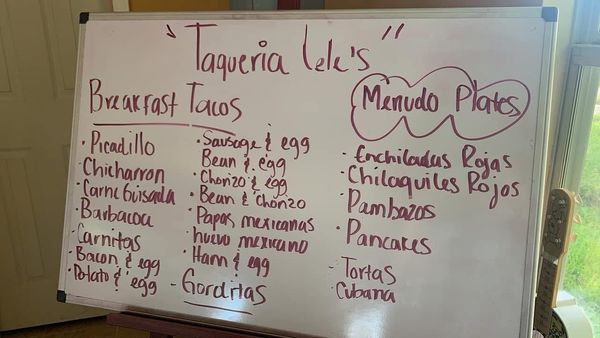 "Taqueria Lele's"
Breakfast Tacos
· Picadillo
· Chicharron
· Carne Guisada
· Barbacoa
· Carnitas
· Bacon & egg
· Potato & egg
· Sausage & egg
Bean & egg
· Chorizo & egg
· Bean & Chorizo
· Papas mexicanas
· huevo mexicano
· Ham & egg
- Gorditas
Menudo Plates
· Enchiladas Rojas
· Chilaquiles Rojos
· Pambazos
· Pancakes
· Tortas
· Cubana